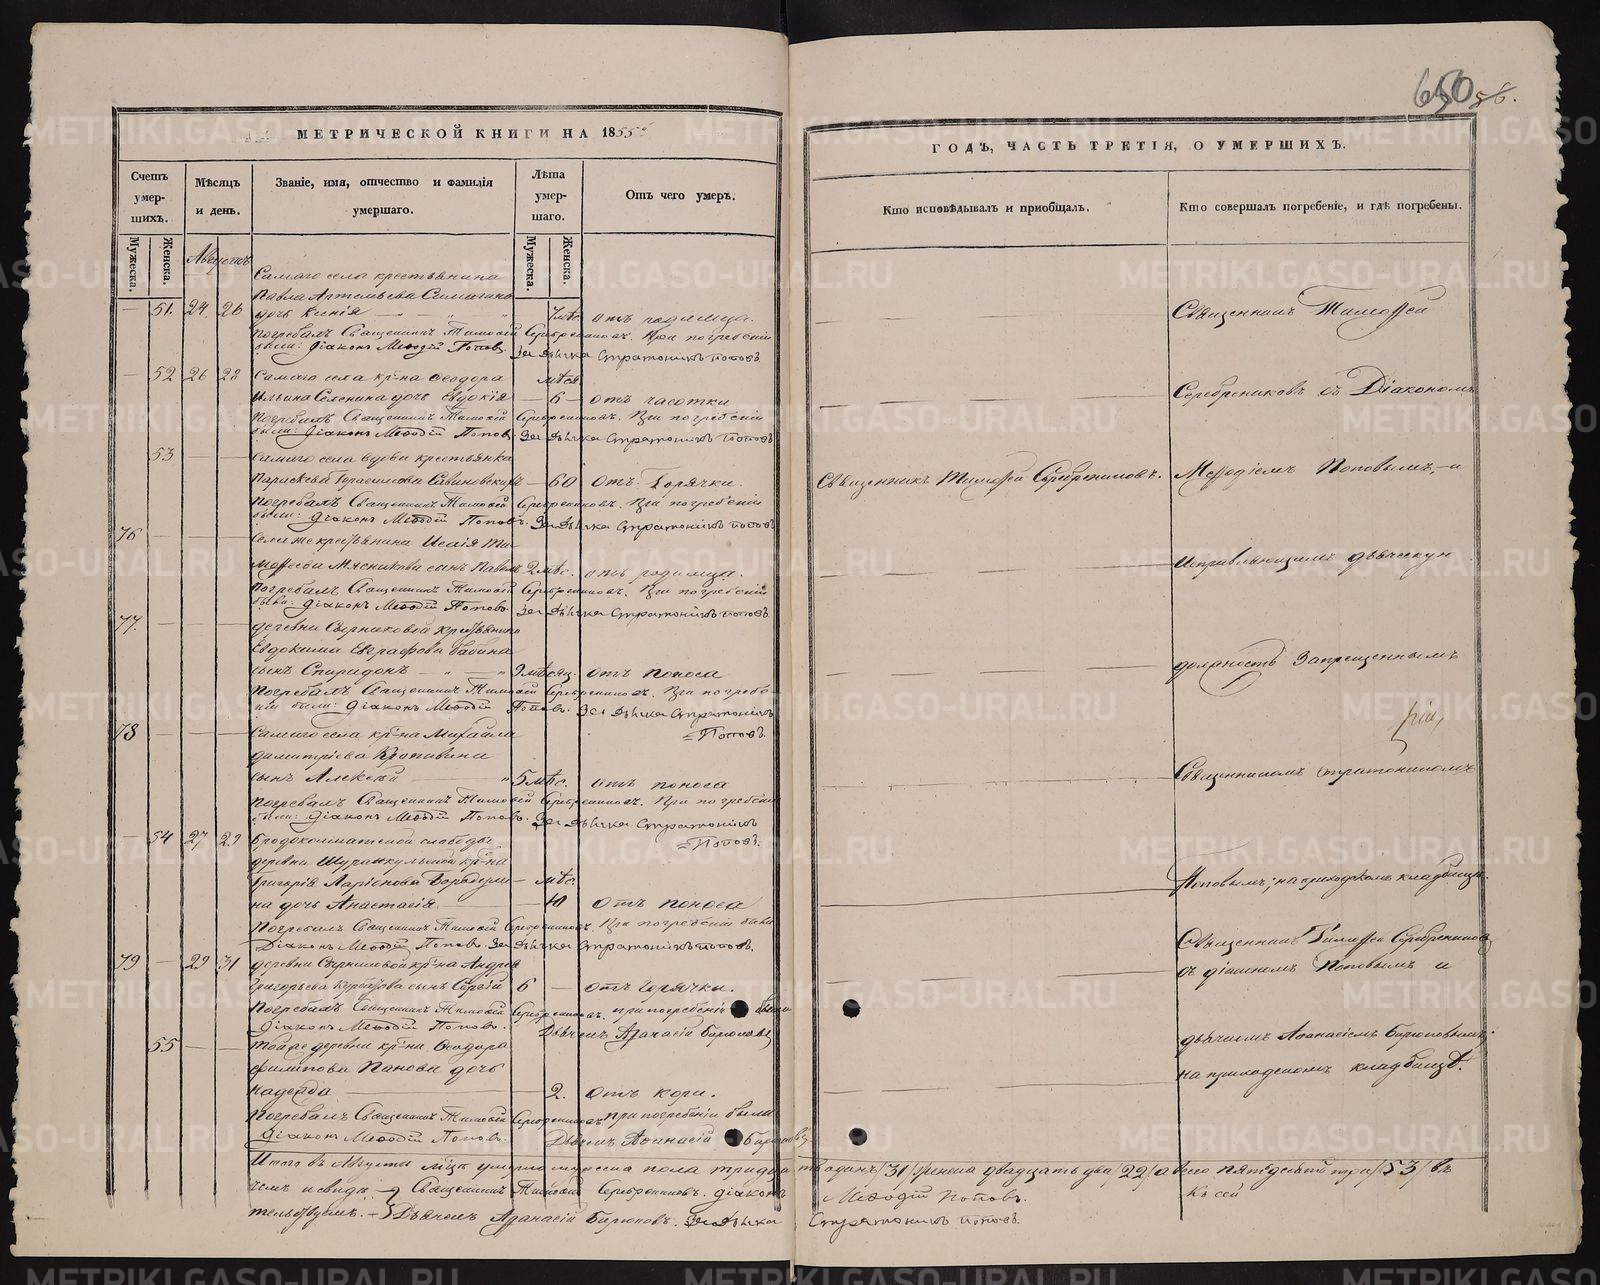 650 56.
МЕТРИЧЕСКОЙ КНИГИ НА 1855
ГОДЪ, ЧАСТЬ ТРЕТІЯ, О УМЕРШИХЪ.
Счетъ умер-шихъ.
Мѣсяцъ и день.
Званіе, имя, отчество и фамилія умершаго.
Лѣта умер-шаго.
Отъ чего умеръ.
Кто исповѣдывалъ и пріобщалъ.
Кто совершалъ погребеніе, и гдѣ погребены.
Мужеска.
Женска.
Мужеска.
Женска.
Августъ
Самаго села крестьянина
Павла Артемьева
51. 24 26 дочь Ксенія отъ родимца.
Священникъ Тимоѳей
Погребалъ Священникъ Тимоѳей Серебренниковъ. При погребеніи
были: Діаконъ Меѳодій Поповъ. За Дьячка Стратоникъ Поповъ.
52 26 28 Самаго села кр-на Ѳеодора мѣся
Ильина дочь Евдокія 6 отъ чахотки
Серебрениковъ съ Діакономъ
Погребалъ Священникъ Тимоѳей Серебренниковъ. При погребеніи
были: Діаконъ Меѳодій Поповъ. За Дьячка Стратоникъ Поповъ
53 Самаго села вдова крестьянка
60 отъ Горячки.
Священникъ Тимоѳей Серебрениковъ.
Меѳодіемъ Поповымъ, и
Погребалъ Священникъ Тимоѳей Серебренниковъ. При погребеніи
были: Діаконъ Меѳодій Поповъ. За Дьячка Стратоникъ Поповъ
76 Села же крестьянина Исаія Ти-
моѳеева Мясникова сынъ Павелъ 2 мѣс. отъ родимца.
исправляющимъ дьяческую
Погребалъ Священникъ Тимоѳей Серебренниковъ. При погребеніи
были: Діаконъ Меѳодій Поповъ. За Дьячка Стратоникъ Поповъ.
77. деревни крестьянина
Евдокима Евграфова Бабина
сынъ Спиридонъ мѣсяц. отъ поноса
должность Запрещеннымъ
Погребалъ Священникъ Тимоѳей Серебренниковъ. При погребе-
ніи были: Діаконъ Меѳодій Поповъ. За Дьячка Стратоникъ
Поповъ.
78 Самаго села кр-на Михайла
Димитріева
сынъ Алексѣй 5 мѣс. отъ поноса
Священникомъ Стратоникомъ
Погребалъ Священникъ Тимоѳей Серебренниковъ. При погребеніи
были: Діаконъ Меѳодій Поповъ. За Дьячка Стратоникъ
Поповъ.
54 27 29 Бродокалматской слободы
деревни кр-на
Григорія Ларіонова мѣс.
на дочь Анастасія 10 отъ поноса
Поповымъ; на приходскомъ кладбищѣ.
Погребалъ Священникъ Тимоѳей Серебренниковъ. При погребеніи были
Діаконъ Меѳодій Поповъ. За Дьячка Стратоникъ Поповъ.
79 29 31 деревни кр-на Андрея
Григорьева сынъ Сергій 6 отъ Горячки.
Священникъ Тимоѳей Серебрениковъ
съ діакономъ Поповымъ и
Погребалъ Священникъ Тимоѳей Серебренниковъ. При погребеніи были
Діаконъ Меѳодій Поповъ. Дьячекъ Аѳанасій Бирюковъ
55 Тоя же деревни кр-на Ѳеодора
Филипова Панова дочь
Надежда 2. отъ кори.
дьячкомъ Аѳанасіемъ Бирюковымъ;
на приходскомъ кладбищѣ.
Погребалъ Священникъ Тимоѳей Серебренниковъ. При погребеніи были
Діаконъ Меѳодій Поповъ. Дьячекъ Аѳанасій Бирюковъ
Итого въ Августѣ мѣсяцѣ умерло мужеска пола тридцать одинъ /31/ женска двадцать два /22/ а всего пятьдесятъ три /53/ въ
чемъ и свидѣ- Священникъ Тимоѳей Серебренниковъ. Діаконъ Меѳодій Поповъ. Къ сей
тельствуемъ. Дьячекъ Аѳанасій Бирюковъ. За Дьячка Стратоникъ Поповъ.
METRIKI.GASO-URAL.RU